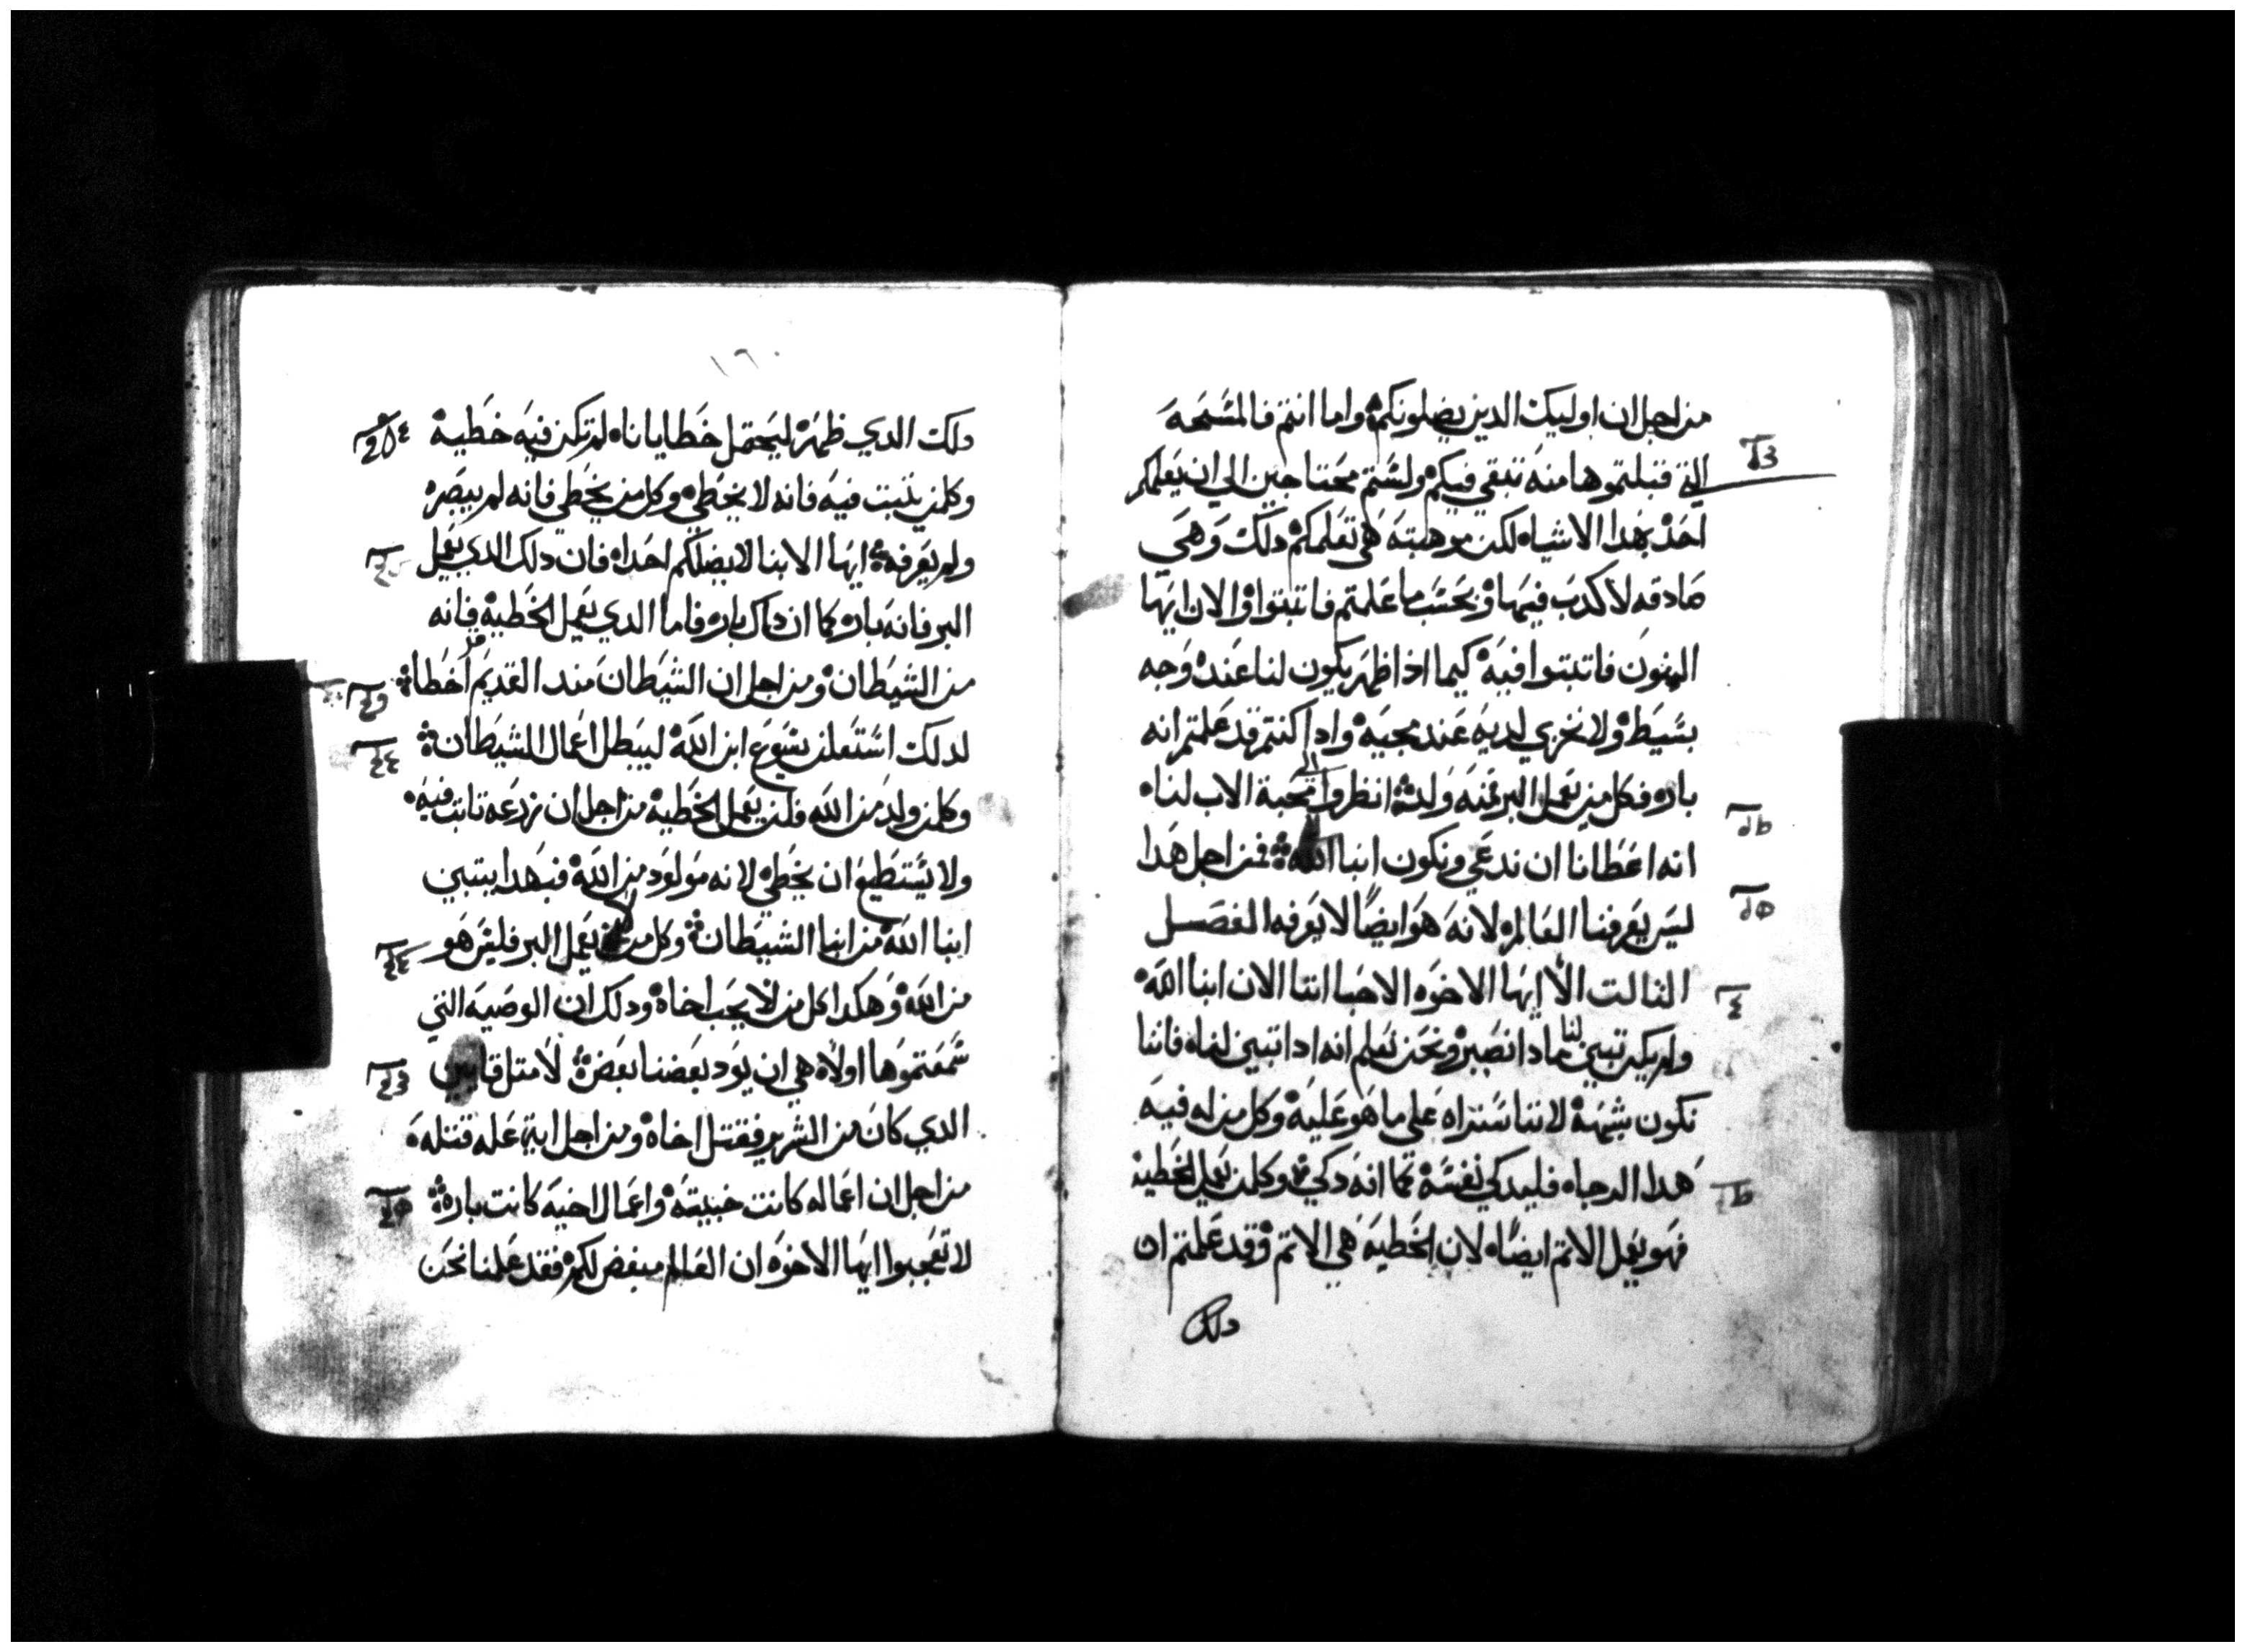 من اجل ان اوليك الدين يضلونكم واما انتم فالمسحه
التي قبلتموها منه تبقي فيكم ولستم محتاجين الي ان يعلمكم
احد بهدا الاشياء لكن موهبته هي تعلمكم دلك وهي
صادقه لا كدب فيها وبحسب ما علمتم فاتبتوا والان ايها
البنون فاتبتوا فيه كيما اذا ظهر يكون لنا عنده وجه
بسيط ولا نخزي لديه عند مجيه وادا كنتم قد علمتم انه
بار فكل من يعمل البر فمنه ولد انظروا الي محبة الاب لنا
انه اعطانا ان ندعي ونكون ابنا الله فمن اجل هدا
ليس يعرفنا العالم لانه هو ايضا لا يعرفه الفصل
التالت الا ايها الاخوه الاحبا اننا الان ابنا الله
ولم يكن تبين لنا مادا نصير ونحن نعلم انه ادا تبين لنا فاننا
نكون شبهه لاننا سنراه علي ما هو عليه وكل من له فيه
هدا الرجاء فليدكي نفسه كما انه دكي وكلمن يعمل الخطيه
فهو يعمل الاتم ايضا لان الخطيه هي الاتم وقد علمتم ان
دلك
١٦٠
دلك الدي ظهر ليحتمل خطايانا لم تكن فيه خطية
وكلمن يتبت فيه فانه لا يخطي وكل من يخطي فانه لم يبصره
ولم يعرفه ايها الابنا لا يضلكم احد فان دلك الدي يعمل
البر فانه بار كما ان داك بار فاما الدي يعمل الخطيه فانه
من الشيطان ومن اجل ان الشيطان مند القديم اخطا
لدلك استعلن يسوع ابن الله ليبطل اعمال الشيطان
وكلمن ولد من الله فلن يعمل الخطيه من اجل ان زرعه تابت فيه
ولا يستطيع ان يخطي لانه مولود من الله فبهدا يتبين
ابنا الله من ابنا الشيطان وكل من لا يعمل البر فليس هو
من الله وهكدا كل من لا يحب اخاه ودلك ان الوصيه التي
سمعتموها اولا هي ان يود بعضنا بعض لا متل قايين
الدي كان من الشرير فقتل اخاه ومن اجل اية عله قتله
من اجل ان اعماله كانت خبيته واعمال اخيه كانت باره
لا تعجبوا ايها الاخوه ان العالم مبغض لكم فقد علمنا نحن